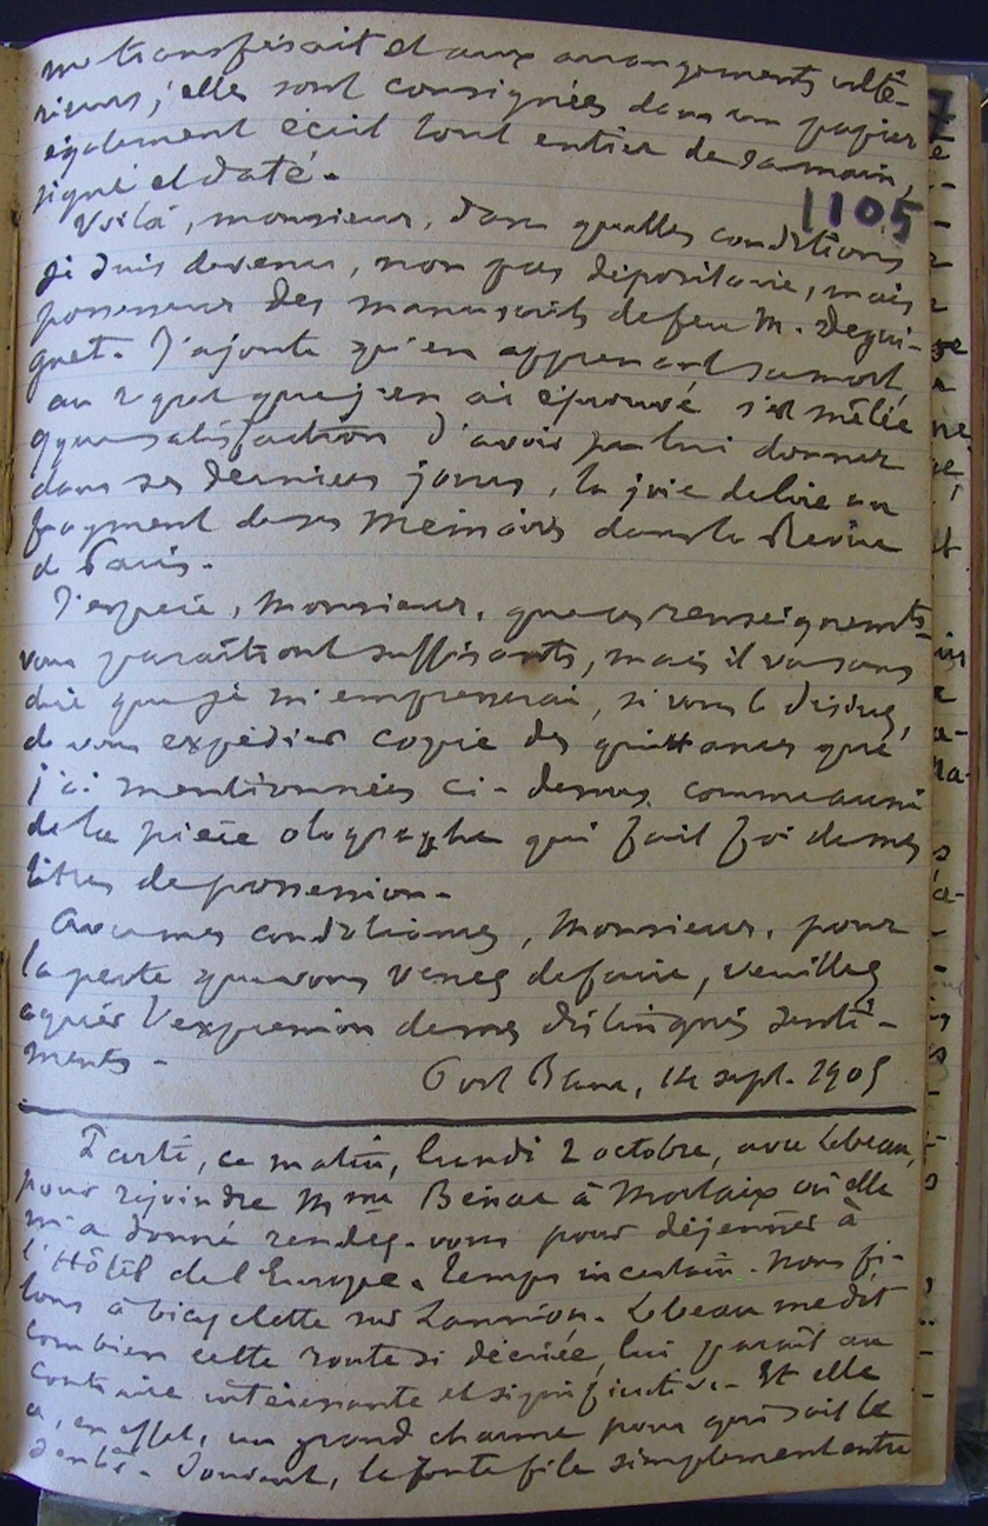 me transférait et aux arrangements ulté-
rieurs ; elles sont consignées dans un papier
également écrit tout entier de sa main,
signé et daté.
1105
Voilà, monsieur, dans quelles conditions
je suis devenu, non pas dépositaire, mais
possesseur des manuscrits de feu M. Dégui-
gnet. J'ajoute qu'en apprenant sa mort
au regret que j'en ai éprouvé s'est mêlée
q que satisfaction d'avoir pu lui donner
dans ses derniers jours, la joie de lire un
fragment de ses Mémoires dans la Revue
de Paris.
J'espère, Monsieur, que ces renseignemts
vous paraîtront suffisants, mais il va sans
dire que je m'empresserai, si vous le désirez,
de vous expédier copie des quittances que
j'ai mentionnées ci-dessus, comme aussi
de la pièce olographe qui fait foi de mes
titres de possession.
Avec mes condoléances, Monsieur, pour
la perte que vous venez de faire, veuillez
agréer l'expression de mes distingués senti-
ments.
Port Blanc, 14 sept. 1905
Parti, ce matin, lundi 2 octobre, avec Lebeau,
pour rejoindre Mme Bénac à Morlaix où elle
m'a donné rendez-vous pour déjeuner à
l'Hôtel de l'Europe. Temps incertain. Nous fi-
lons à bicyclette sur Lannion. Lebeau me dit
combien cette route si décriée, lui paraît au
contraire intéressante et significative. Et elle
a, en effet, un grand charme pour qui sait le
sentir. Souvent, le file simplement entre